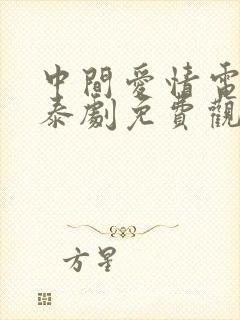 中間愛情電
泰劇免費觀
方星